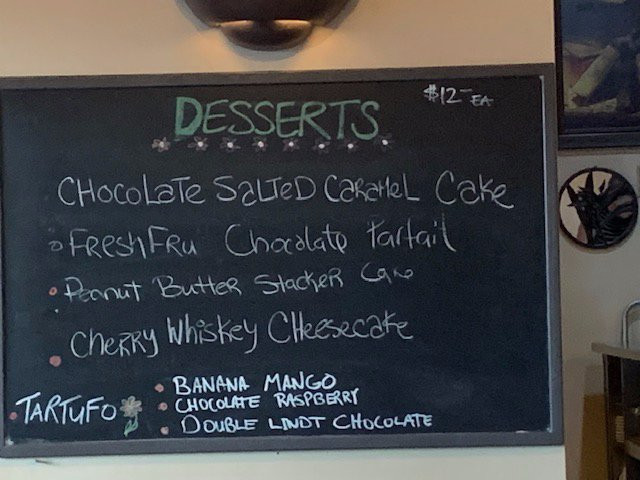 DESSERTS
$12- EA
CHOCOLATE SALTED CARAMEL Cake
FRESH FRU Chocolate Parfait
Peanut Butter Stacker Cake
CHERRY WHISKEY CHEESECAKE
TARTUFO
BANANA MANGO
CHOCOLATE RASPBERRY
DOUBLE LINDT CHOCOLATE